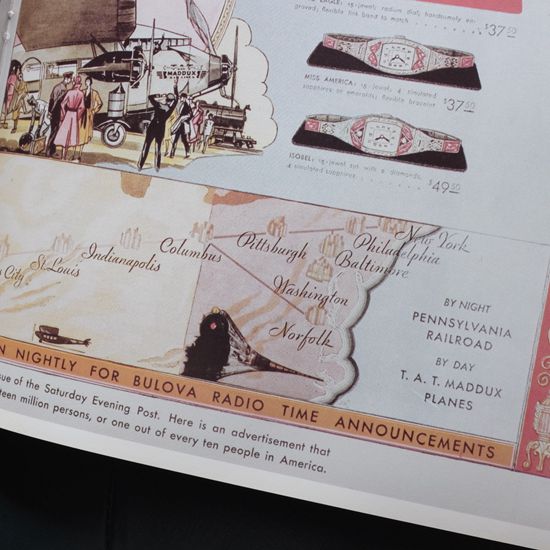 EAGLE: 15-jewel; radium dial; handsomely en-
graved; flexible link band to match
$37.50
MADDUX
MISS AMERICA: 15-jewel, 4 simulated
sapphires or emeralds; flexible bracelet
$37.50
ISOBEL: 15-jewel set with 2 diamonds,
4 simulated sapphires
$49.50
City
St. Louis
Indianapolis
Columbus
Pittsburgh
New York
Philadelphia
Baltimore
Washington
Norfolk
BY NIGHT
PENNSYLVANIA
RAILROAD
BY DAY
T. A. T. MADDUX
PLANES
N NIGHTLY FOR BULOVA RADIO TIME ANNOUNCEMENTS
sue of the Saturday Evening Post. Here is an advertisement that
teen million persons, or one out of every ten people in America.